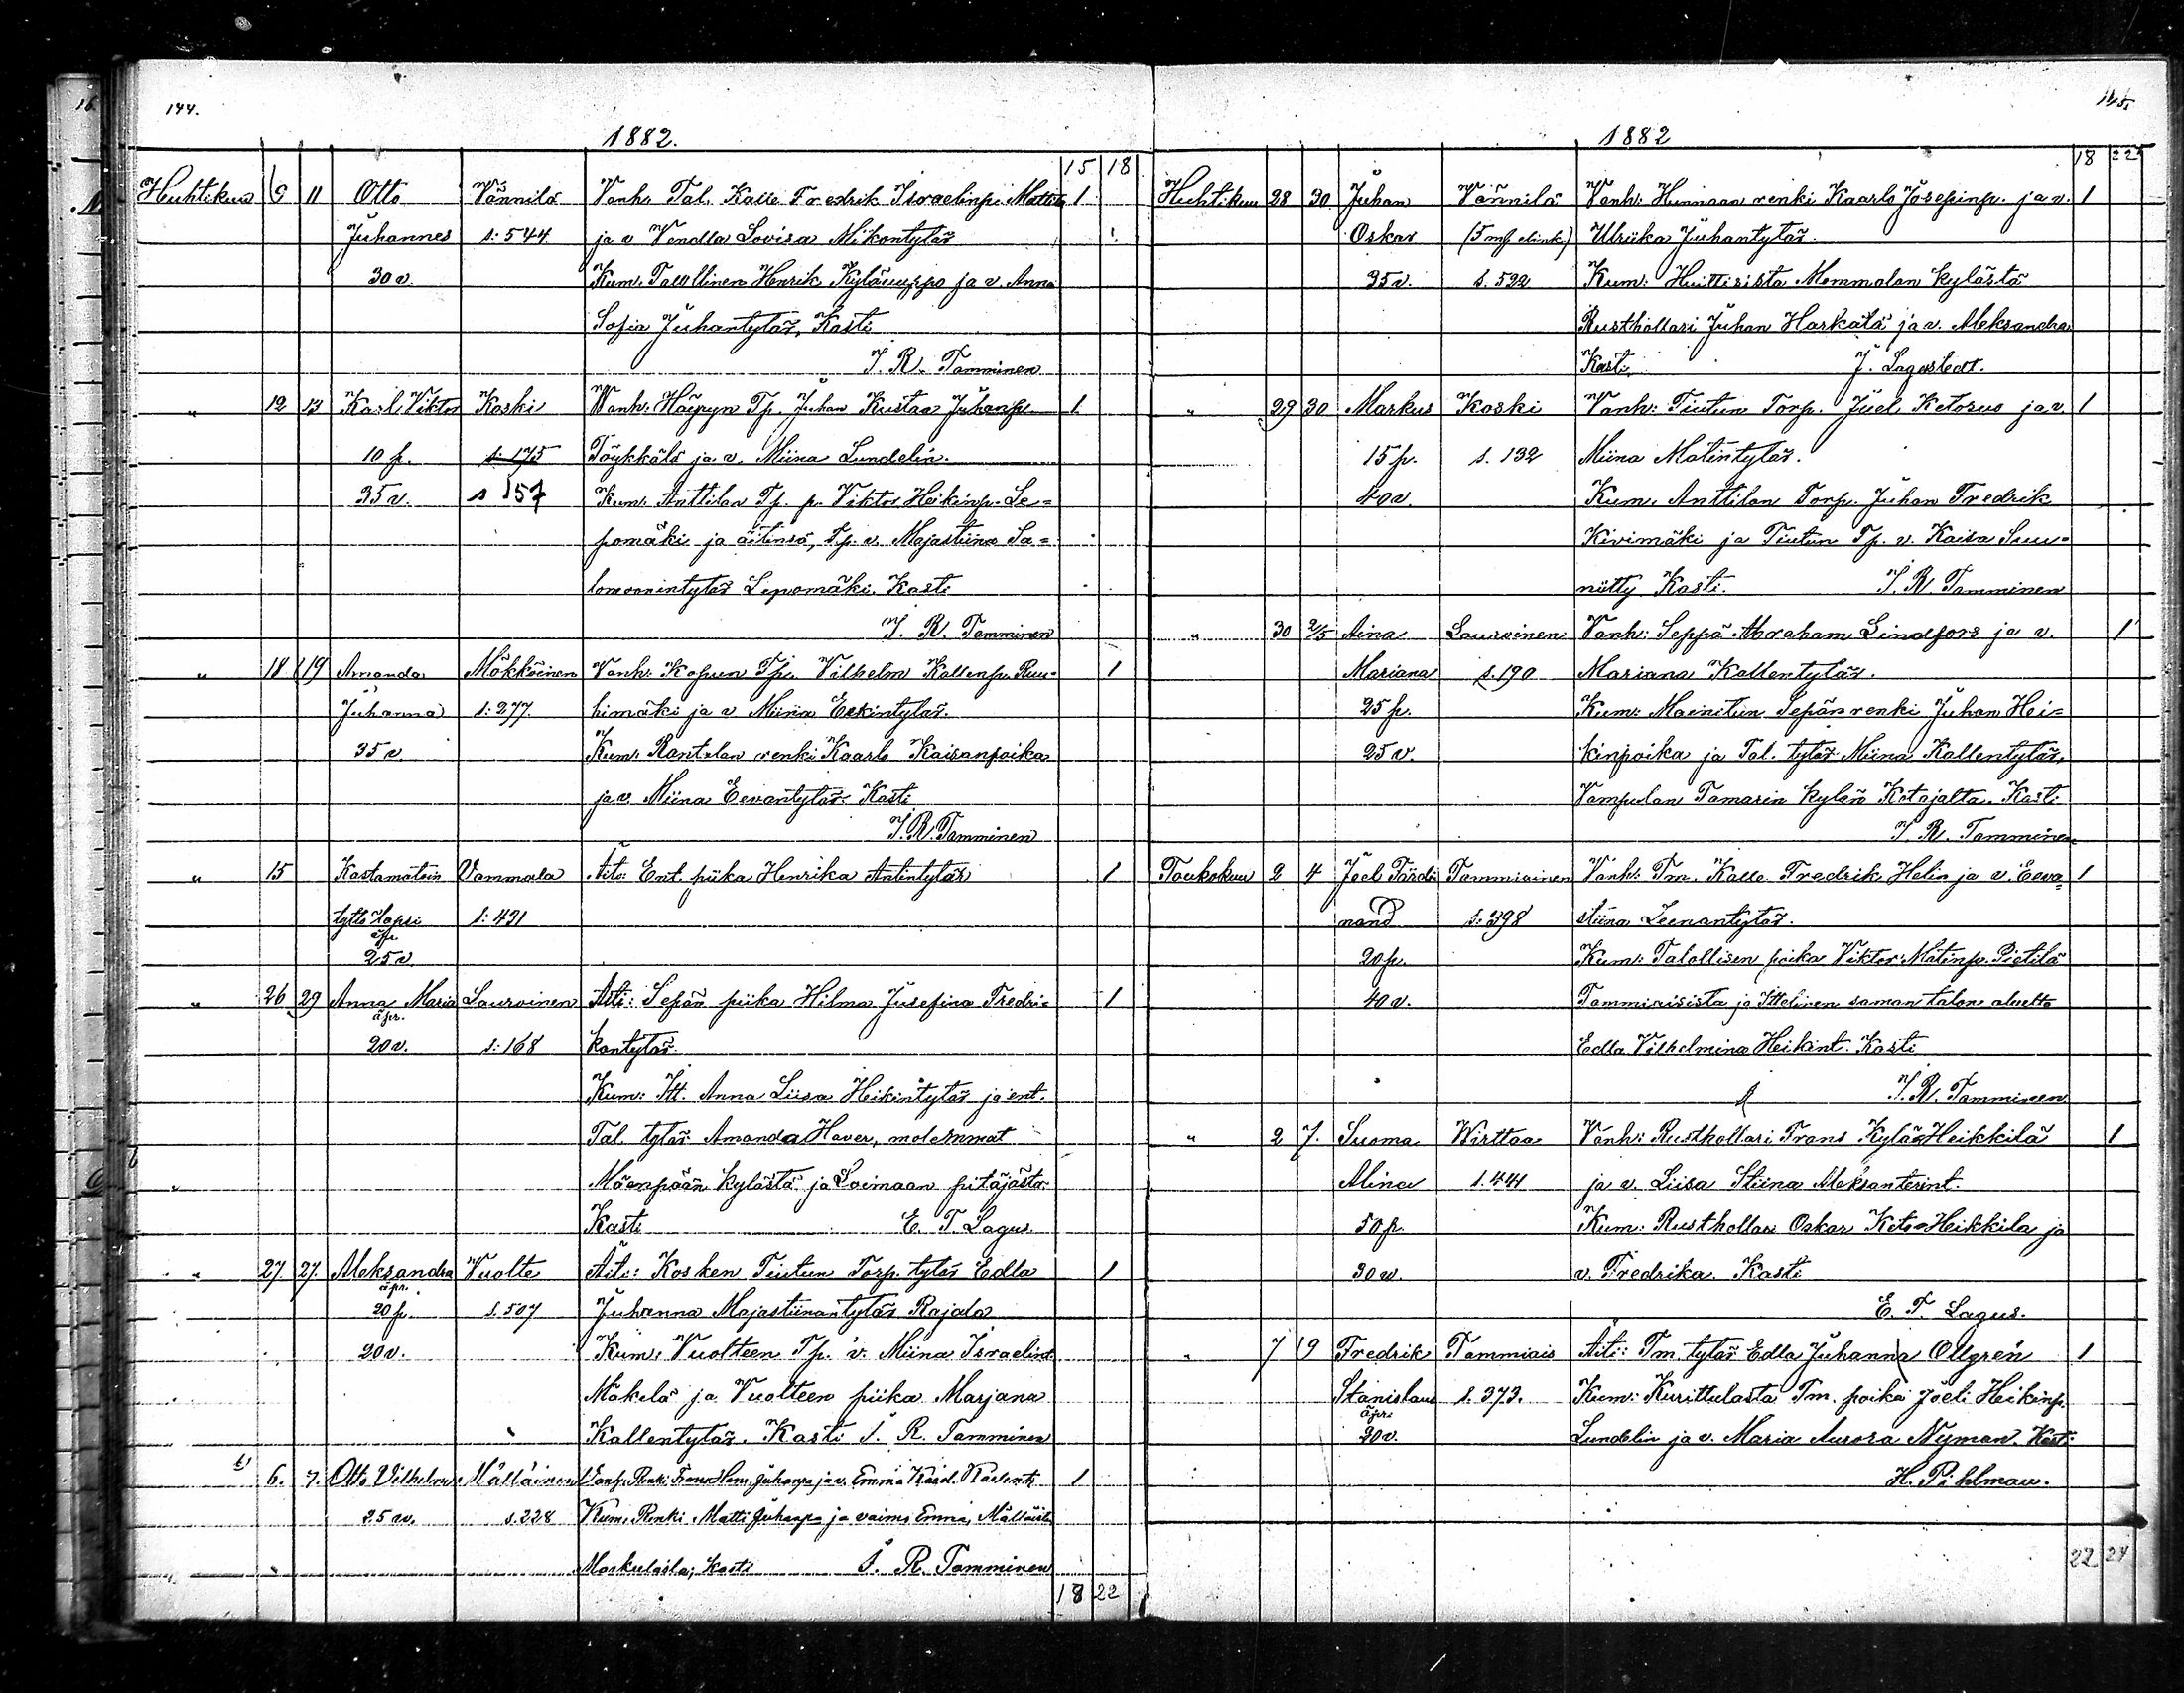 144.
1882.
15 18
Huhtikuu 9 11 Otto Vännilä Vanh. Tal. Kalle Fredrik Israelinp. Mattila 1
Juhannes s: 544 ja v Vendla Lovisa Mikontytär
30 v. Kum. Talollinen Henrik Kylänuppo ja v. Anna
Sofia Juhantytär, Kasti
I. R. Tamminen
" 12 13 Karl Viktor Koski Vanh: Höypyn Tp. Juhan Kustaa Juhanp. 1
10 p. s. 175 Töykkälä ja v. Miina Lundelin.
35 v. s 157 Kum. Anttilan Tp. p. Viktor Heikinp. Le=
pomäki ja äitinsä, Tp. v. Majastiina Sa=
lomonintytär Lepomäki. Kasti
I. R. Tamminen
" 18 19 Amanda Mökköinen Vanh: Kopun Tp. Vilhelm Kallenp. Ruu- 1
Juhanna s: 277. himäki ja v Miina Eerkintytär.
35 v. Kum. Rantalan renki Kaarlo Kaisanpoika
ja v. Miina Eevantytär. Kasti
I. R. Tamminen
" 15 Kastamatoin Vammala Äiti: Ent. piika Henrika Antintytär 1
tyttö lapsi s: 431
äpr.
25 v.
" 26 29 Anna Maria Lauroinen Äiti: Sepän piika Hilma Jusefina Fredri= 1
äpr.
20 v. s: 168 kantytär.
Kum: Itt. Anna Liisa Heikintytär ja ent.
Tal. tytär Amanda Haver, molemmat
Mäenpään kylästä ja Loimaan pitäjästä
Kasti E. T. Lagus.
" 27. 27. Aleksandra Vuolte Äiti: Kosken Tiutun Torp. tytär Edla 1
äpr.
20 p. s. 507 Juhanna Majastiinantytär Rajala
20 v. Kum. Vuolteen Tp. v. Miina Israelint.
Mäkelä ja Vuolteen piika Marjana
Kallentytär. Kasti I. R. Tamminen
6. 7. Otto Vilhelm Mälläinen Vanh. Renki Frans Juhanp. ja v. Emma Karol. Kaarlent. 1
25 v. s. 228 Kum. Renki Matti Juhanp. ja vaimo Emma, Mälläistä
Maskulasta; kasti I. R. Tamminen
18 22
1882
18 22
Huhtikuu 28 30 Juhan Vännilä Vanh: Hunnaan renki Kaarlo Josepinp. ja v. 1
Oskar Ulriika Juhantytär.
35 v. s. 522 Kum: Huittisista Mommolan kylästä
Rusthollari Juhan Harkälä ja v. Aleksandra
Kasti. J. Lagerstedt.
" 29 30 Markus Koski Vanh: Tiutun Torp. Juel Ketorus ja v. 1
15 p. s. 132 Miina Matintytär.
40 v. Kum. Anttilan Torp. Juhan Fredrik
Kivimäki ja Tiutun Tp. v. Kaisa Suu=
niitty Kasti. I. R. Tamminen
" 30 2/5 Aina Lauroinen Vanh: Seppä Abraham Lindfors ja v. 1
Mariana s. 190 Mariana Kallentytär.
25 p. Kum: Mainitun Sepän renki Juhan Hei=
25 v. kinpoika ja Tal. tytär Miina Kallentytär,
Vampulan Tamarin kylän Katajalta. Kasti
I. R. Tamminen
Toukokuu 2 4 Joel Färdi Tammiainen Vanh: Tm. Kalle Fredrik Helin ja v. Eeva= 1
nand s: 398 stiina Leenantytär.
20 p. Kum: Talollisen poika Viktor Matinp. Pietilä
40 v. Tammiaisista ja Itellinen saman talon aluetta
Edla Vilhelmina Heikint. Kasti
I. R. Tamminen
" 2 7. Susma Wirttaa Vanh: Rusthollari Frans Kylä=Heikkilä 1
Alina s. 441 ja v. Liisa Stiina Aleksanterint.
50 p. Kum: Rusthollari Oskar Keto=Heikkila ja
30 v. v. Fredrika. Kasti
E. T. Lagus.
" 7 9 Fredrik Tammiais Äiti: Tm. tytär Edla Juhanna Ollgren 1
Stanislaus s. 373. Kum: Kurittulasta Tm. poika Joeli Heikinp.
äpr.
20 v. Lundelin ja v. Maria Aurora Nyman. Kasti
H. Pihlman.
22 24